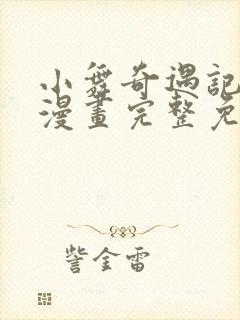 小舞奇遇記
漫畫完整免
訾金雷